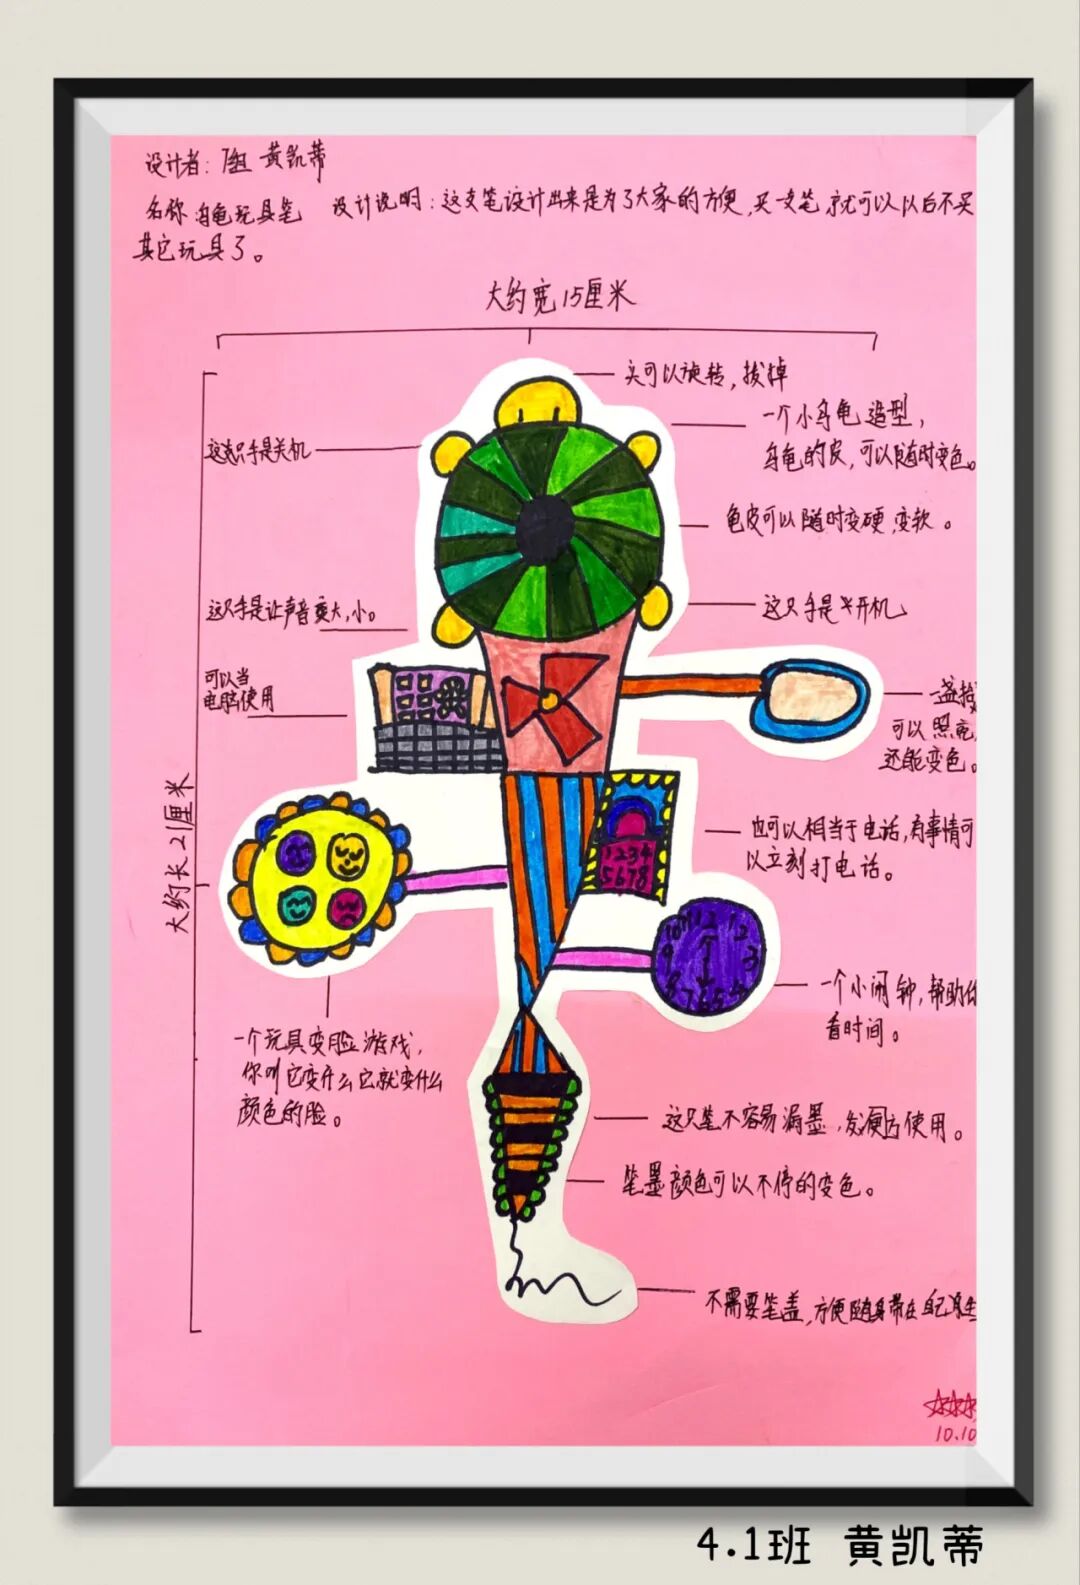 设计者：7组 黄凯蒂
名称 乌龟玩具笔 设计说明：这支笔设计出来是为了大家的方便，买一支笔，就可以以后不买
其它玩具了。
大约宽15厘米
头可以旋转，拔掉
一个小乌龟造型，
乌龟的皮，可以随时变色。
这只手是关机
龟皮可以随时变硬，变软。
这只手是让声音变大，小。
这只手是开机
可以当
电脑使用
一盏
可以照亮，
还能变色。
大约长21厘米
也可以相当于电话，有事情可
以立刻打电话。
1234
5678
11 12 1 2 3 4 5 6 7 8 9 10
一个小闹钟，帮助你
看时间。
一个玩具变脸游戏，
你叫它变什么它就变什么
颜色的脸。
这只笔不容易漏墨，方便使用。
笔墨颜色可以不停的变色。
不需要笔盖，方便随身带在自己
10.10
4.1班 黄凯蒂